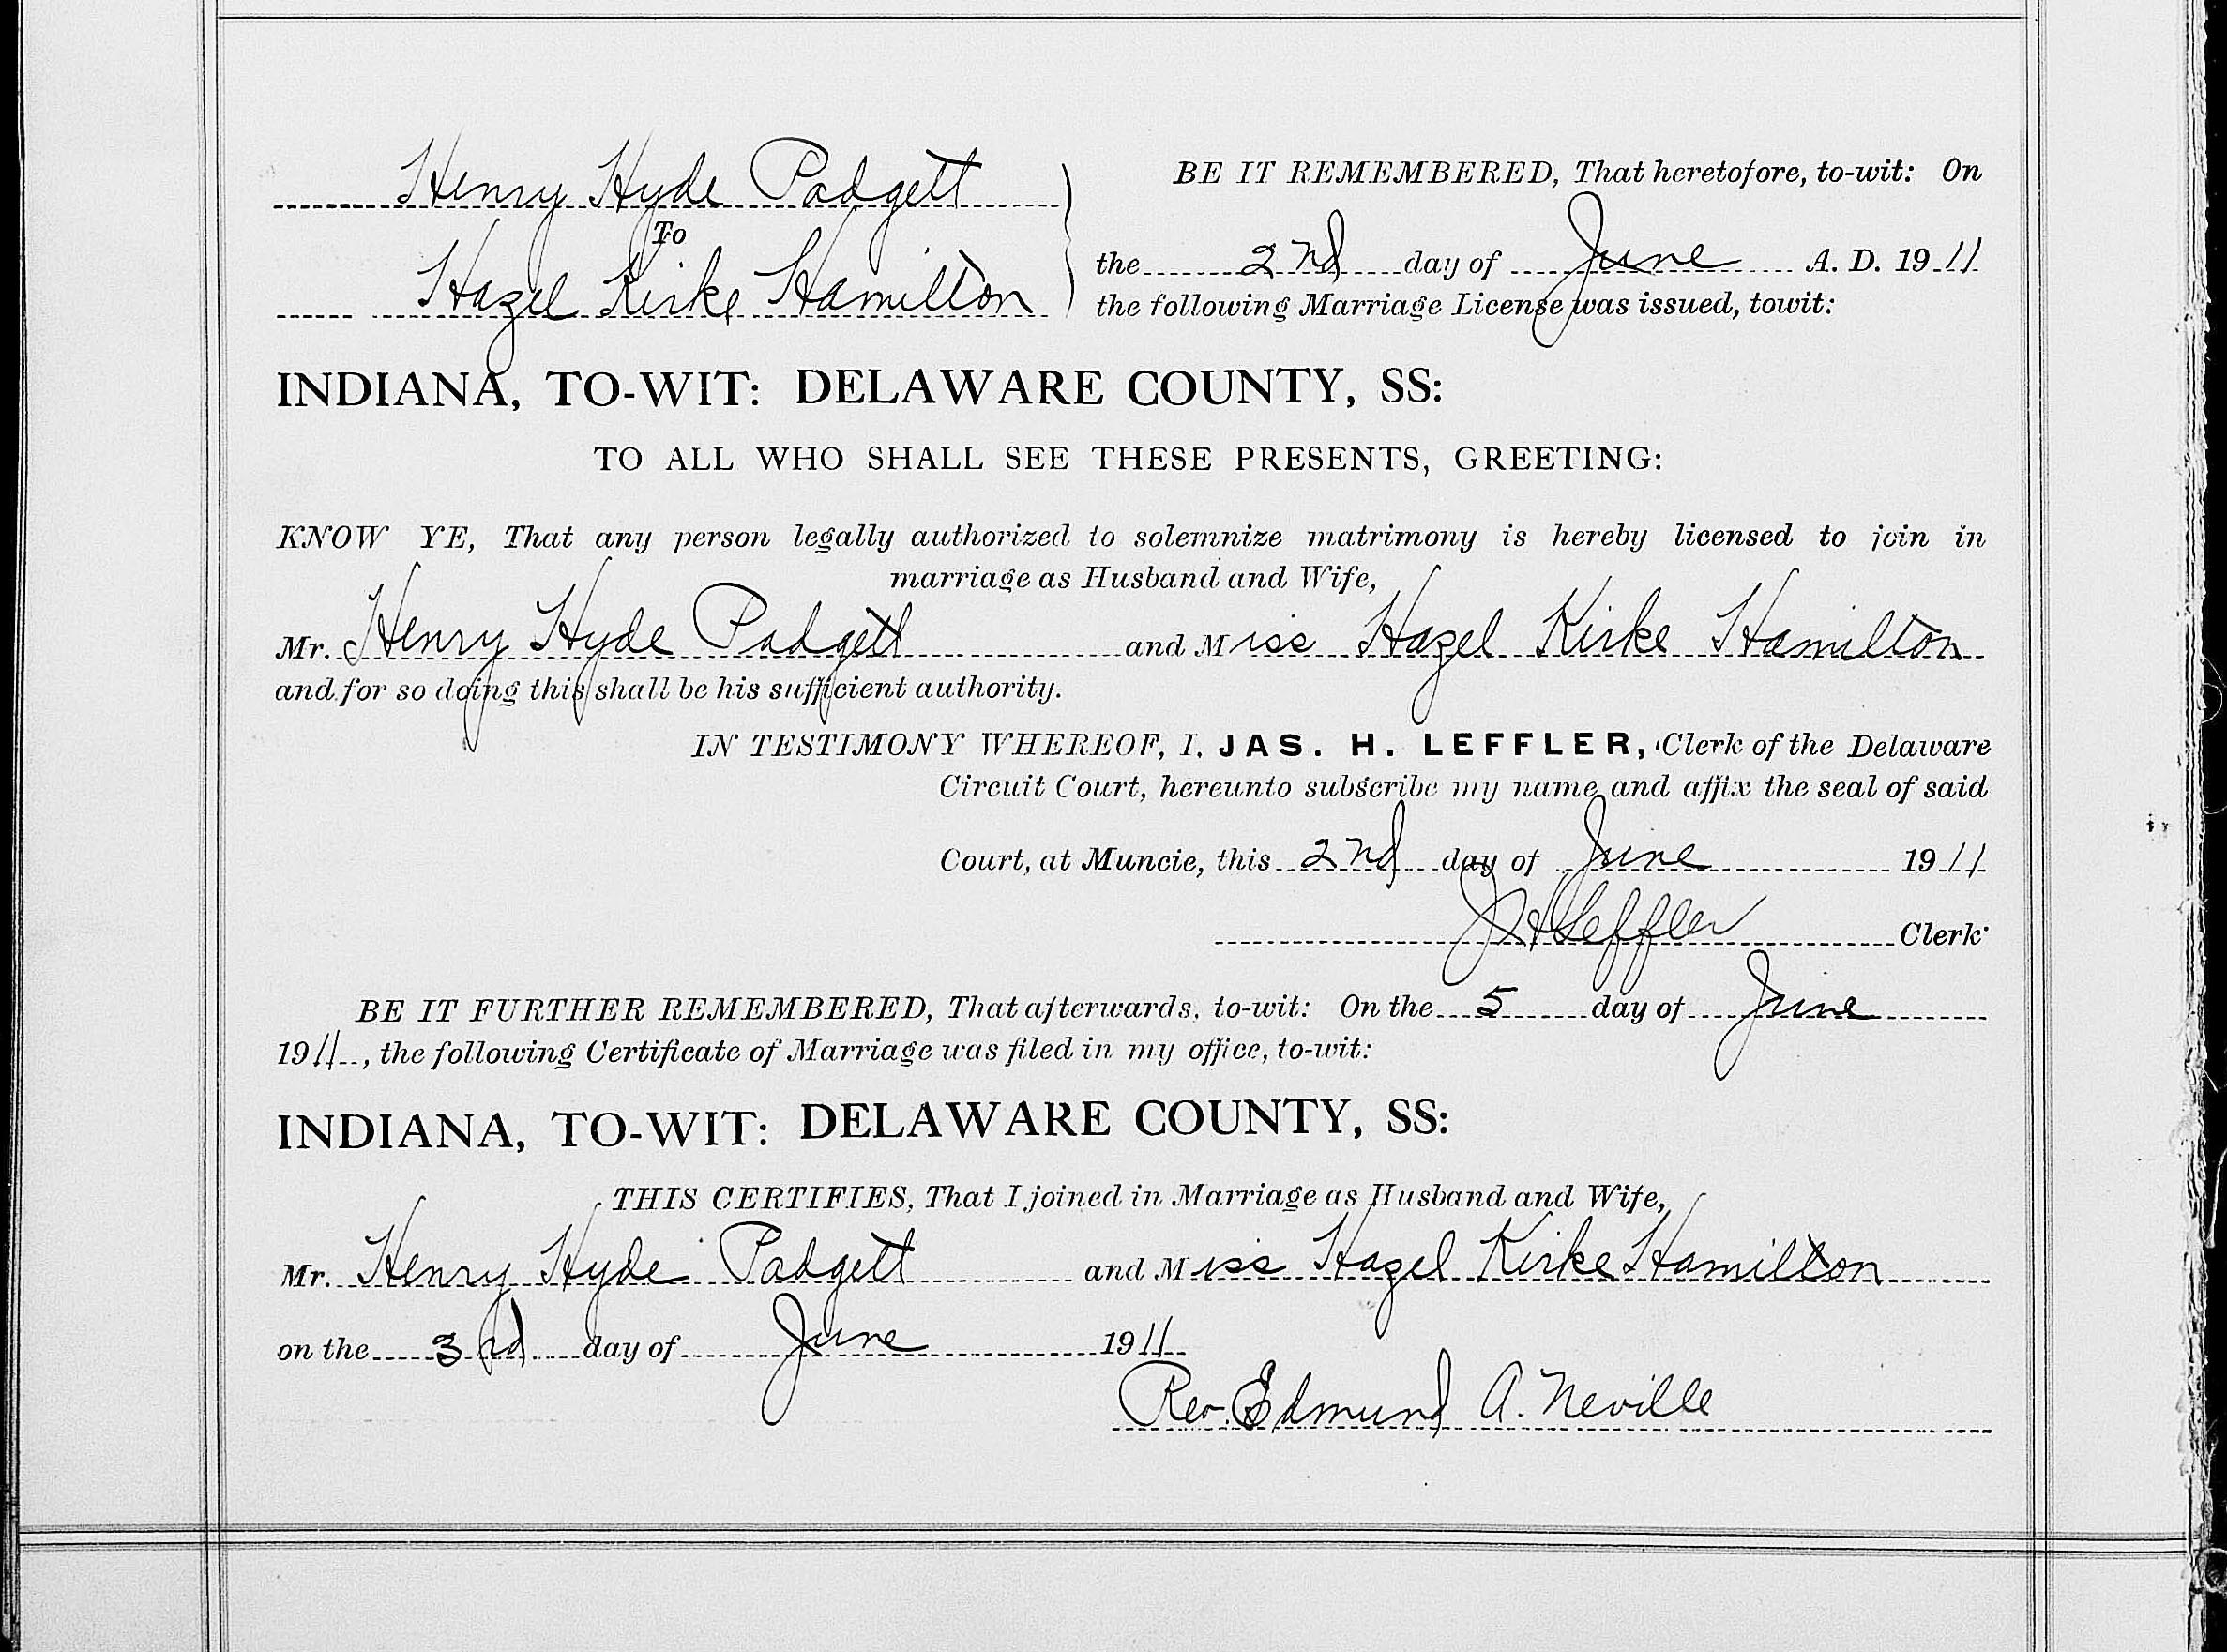 Henry Hyde Padgett
To
Hazel Kirke Hamilton
BE IT REMEMBERED, That heretofore, to-wit: On
the 2nd day of June A. D. 1911
the following Marriage License was issued, towit:
INDIANA, TO-WIT: DELAWARE COUNTY, SS:
TO ALL WHO SHALL SEE THESE PRESENTS, GREETING:
KNOW YE, That any person legally authorized to solemnize matrimony is hereby licensed to join in
marriage as Husband and Wife,
Mr. Henry Hyde Padgett and Miss Hazel Kirke Hamilton
and for so doing this shall be his sufficient authority.
IN TESTIMONY WHEREOF, I, JAS. H. LEFFLER, Clerk of the Delaware
Circuit Court, hereunto subscribe my name and affix the seal of said
Court, at Muncie, this 2nd day of June 1911
J H Leffler Clerk
BE IT FURTHER REMEMBERED, That afterwards, to-wit: On the 5 day of June
1911, the following Certificate of Marriage was filed in my office, to-wit:
INDIANA, TO-WIT: DELAWARE COUNTY, SS:
THIS CERTIFIES, That I joined in Marriage as Husband and Wife,
Mr. Henry Hyde Padgett and Miss Hazel Kirke Hamilton
on the 3rd day of June 1911
Rev. Edmund A. Neville